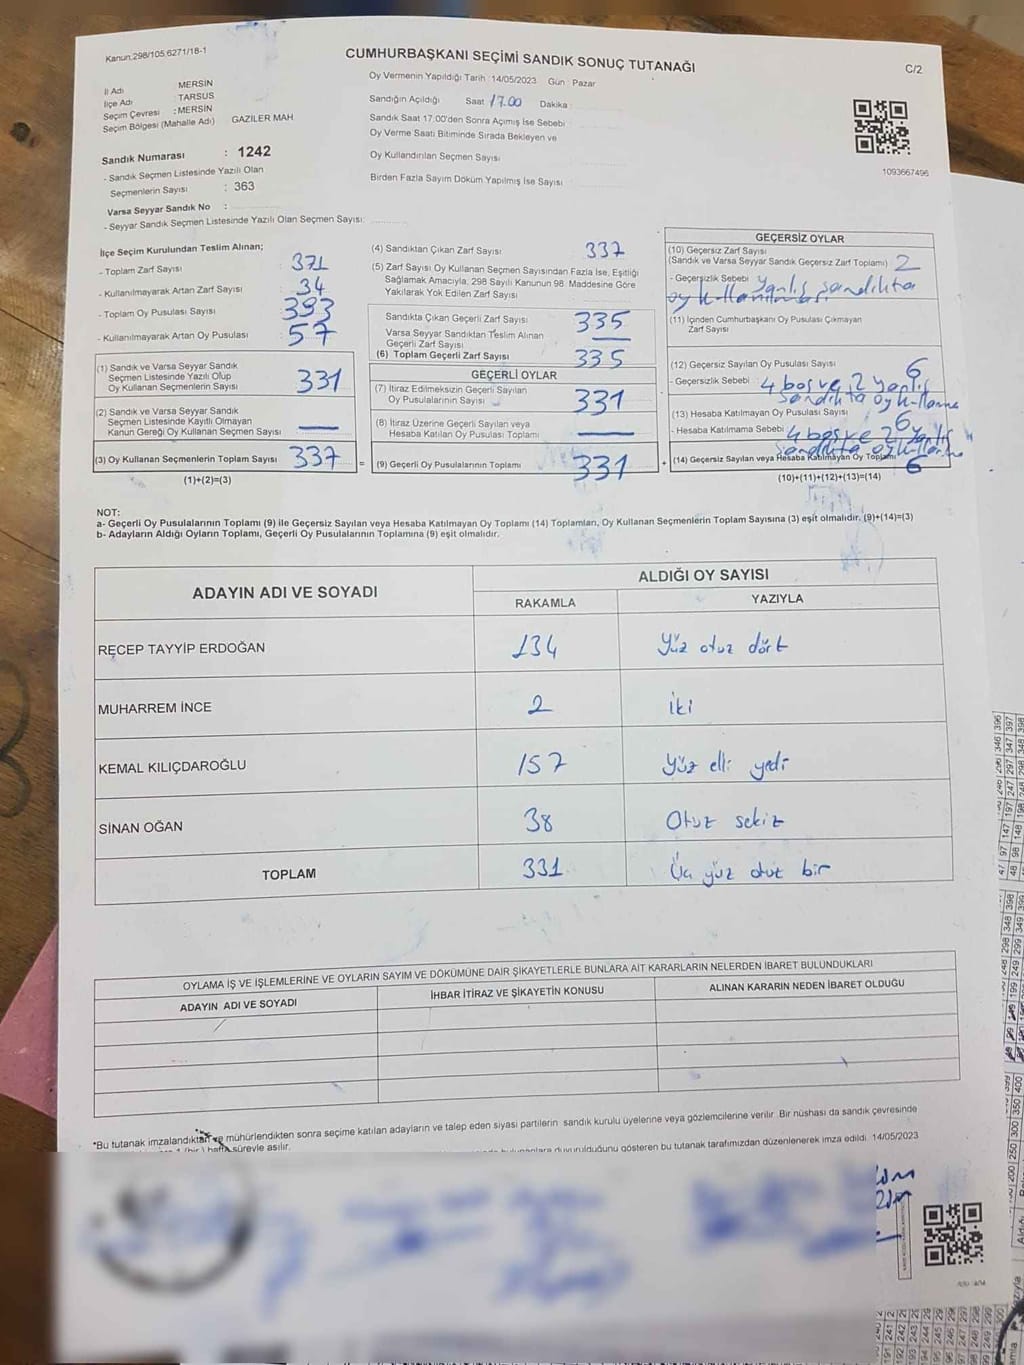 Kanun:298/105,6271/18-1
CUMHURBAŞKANI SEÇİMİ SANDIK SONUÇ TUTANAĞI
C/2
Oy Vermenin Yapıldığı Tarih :14/05/2023 Gün : Pazar
İl Adı MERSİN
İlçe Adı TARSUS
Seçim Çevresi :MERSİN
Seçim Bölgesi (Mahalle Adı) GAZİLER MAH.
Sandığın Açıldığı Saat 17.00 Dakika :
Sandık Saat 17:00'den Sonra Açımış İse Sebebi
Oy Verme Saati Bitiminde Sırada Bekleyen ve
Oy Kullandırılan Seçmen Sayısı
Birden Fazla Sayım Döküm Yapılmış İse Sayısı
1093667496
Sandık Numarası : 1242
- Sandık Seçmen Listesinde Yazılı Olan
Seçmenlerin Sayısı : 363
Varsa Seyyar Sandık No :
- Seyyar Sandık Seçmen Listesinde Yazılı Olan Seçmen Sayısı:
İlçe Seçim Kurulundan Teslim Alınan;
- Toplam Zarf Sayısı 371
- Kullanılmayarak Artan Zarf Sayısı 34
- Toplam Oy Pusulası Sayısı 393
- Kullanılmayarak Artan Oy Pusulası 57
(1) Sandık ve Varsa Seyyar Sandık
Seçmen Listesinde Yazılı Olup
Oy Kullanan Seçmenlerin Sayısı 331
(2) Sandık ve Varsa Seyyar Sandık
Seçmen Listesinde Kayıtlı Olmayan
Kanun Gereği Oy Kullanan Seçmen Sayısı —
(3) Oy Kullanan Seçmenlerin Toplam Sayısı 337
(1)+(2)=(3)
(4) Sandıktan Çıkan Zarf Sayısı 337
(5) Zarf Sayısı Oy Kullanan Seçmen Sayısından Fazla İse, Eşitliği
Sağlamak Amacıyla, 298 Sayılı Kanunun 98 Maddesine Göre
Yakılarak Yok Edilen Zarf Sayısı
Sandıkta Çıkan Geçerli Zarf Sayısı 335
Varsa Seyyar Sandıktan Teslim Alınan
Geçerli Zarf Sayısı —
(6) Toplam Geçerli Zarf Sayısı 335
GEÇERLİ OYLAR
(7) İtiraz Edilmeksizin Geçerli Sayılan
Oy Pusulalarının Sayısı 331
(8) İtiraz Üzerine Geçerli Sayılan veya
Hesaba Katılan Oy Pusulası Toplamı —
= (9) Geçerli Oy Pusulalarının Toplamı 331 +
GEÇERSİZ OYLAR
(10) Geçersiz Zarf Sayısı
(Sandık ve Varsa Seyyar Sandık Geçersiz Zarf Toplamı) 2
- Geçersizlik Sebebi Yanlış sandıkta
oy kullanılması
(11) İçinden Cumhurbaşkanı Oy Pusulası Çıkmayan
Zarf Sayısı
(12) Geçersiz Sayılan Oy Pusulası Sayısı 6
- Geçersizlik Sebebi 4 boş ve 2 yanlış
sandıkta oy kullanma
(13) Hesaba Katılmayan Oy Pusulası Sayısı 6
- Hesaba Katılmama Sebebi 4 boş ve 2 yanlış
sandıkta oy kullanma
(14) Geçersiz Sayılan veya Hesaba Katılmayan Oy Toplamı 6
(10)+(11)+(12)+(13)=(14)
NOT:
a- Geçerli Oy Pusulalarının Toplamı (9) ile Geçersiz Sayılan veya Hesaba Katılmayan Oy Toplamı (14) Toplamları, Oy Kullanan Seçmenlerin Toplam Sayısına (3) eşit olmalıdır. (9)+(14)=(3)
b- Adayların Aldığı Oyların Toplamı, Geçerli Oy Pusulalarının Toplamına (9) eşit olmalıdır.
ADAYIN ADI VE SOYADI ALDIĞI OY SAYISI
RAKAMLA YAZIYLA
RECEP TAYYİP ERDOĞAN 134 Yüz otuz dört
MUHARREM İNCE 2 iki
KEMAL KILIÇDAROĞLU 157 Yüz elli yedi
SİNAN OĞAN 38 Otuz sekiz
TOPLAM 331 Üç yüz otuz bir
OYLAMA İŞ VE İŞLEMLERİNE VE OYLARIN SAYIM VE DÖKÜMÜNE DAİR ŞİKAYETLERLE BUNLARA AİT KARARLARIN NELERDEN İBARET BULUNDUKLARI
ADAYIN ADI VE SOYADI İHBAR İTİRAZ VE ŞİKAYETİN KONUSU ALINAN KARARIN NEDEN İBARET OLDUĞU
*Bu tutanak imzalandıktan ve mühürlendikten sonra seçime katılan adayların ve talep eden siyasi partilerin sandık kurulu üyelerine veya gözlemcilerine verilir. Bir nüshası da sandık çevresinde
1 (bir) hafta süreyle asılır.
duyurulduğunu gösteren bu tutanak tarafımızdan düzenlenerek imza edildi. 14/05/2023